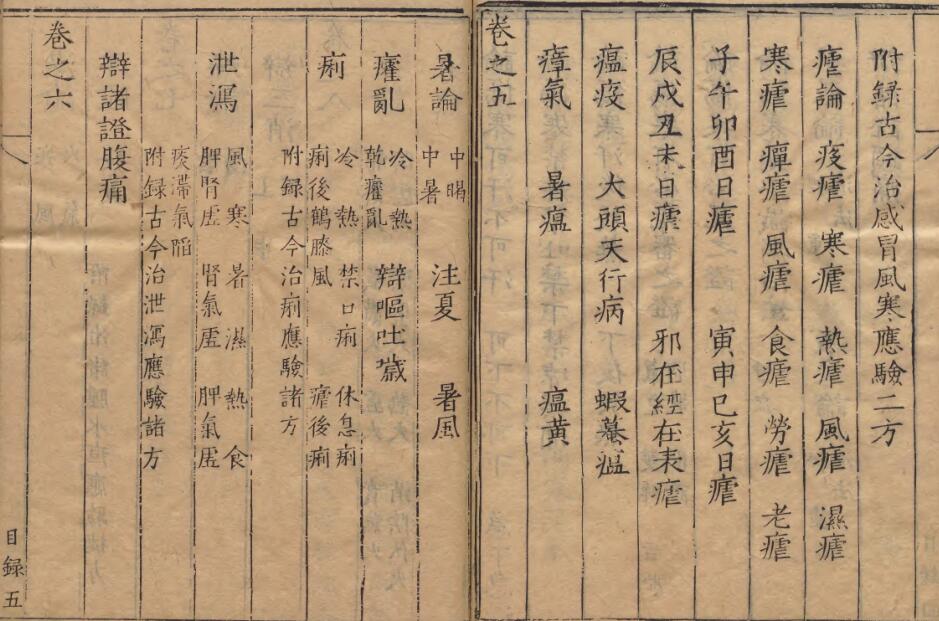 附録古今治感冒風寒應驗二方
瘧論 痎瘧 寒瘧 熱瘧 風瘧 濕瘧
寒瘧 癉瘧 風瘧 食瘧 勞瘧 老瘧
子午卯酉日瘧 寅申巳亥日瘧
辰戌丑未日瘧 邪在經在表瘧
瘟疫 大頭天行病 蝦蟇瘟
瘴氣 暑瘟 瘟黄
卷之五
暑論 中暍 中暑 注夏 暑風
癨亂 冷熱 乾癨亂 辯嘔吐噦
痢 冷熱 禁口痢 休息痢
痢後鶴膝風 瘧後痢
附録古今治痢應驗諸方
泄瀉 風 寒 暑 濕 熱 食
脾腎虛 腎氣虛 脾氣虛
痰滯氣陷
附録古今治泄瀉應驗諸方
辯諸證腹痛
卷之六
目録五